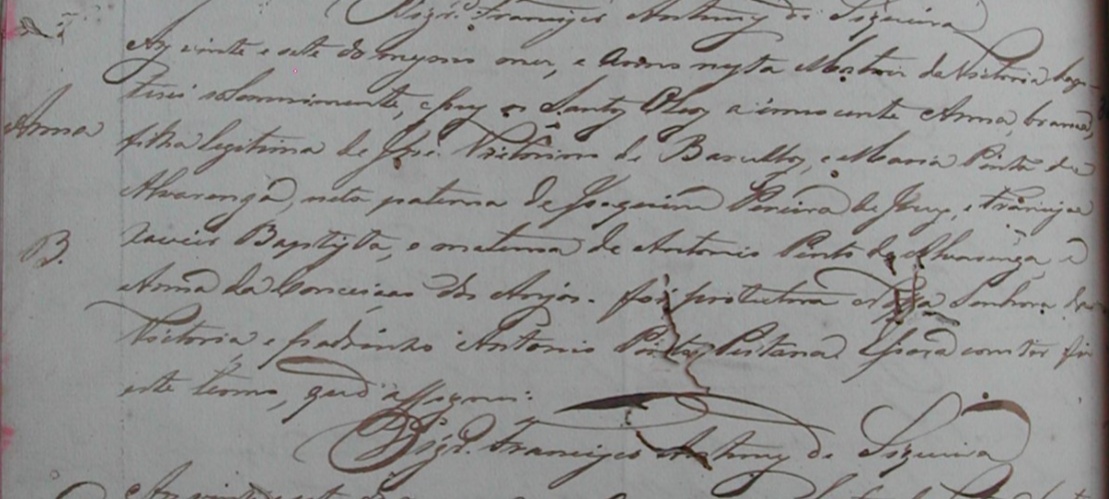 Vigr.º Francisco Antunes de Siqueira
Aos vinte e sete do mesmo mez, e anno nesta Matriz da Victoria bap-
Anna
tisei solemnimente, e puz os Santos Oleos a innocente Anna, branca,
filha legitima de José Victorino de Barcellos, e Maria Pinta de
Alvarenga, neta paterna de Joaquim Pereira de Jesus, e Francisca
B.
Xavier Baptista, e materna de Antonio Pinto de Alvarenga, e
Anna da Conceiçao dos Anjos. foi protectora Nossa Senhora da
Victoria e padrinho Antonio Pinto Pestana. E para constar fiz
este termo, que assignei.
Vigr.º Francisco Antunes de Siqueira
Aos vinte e sete do